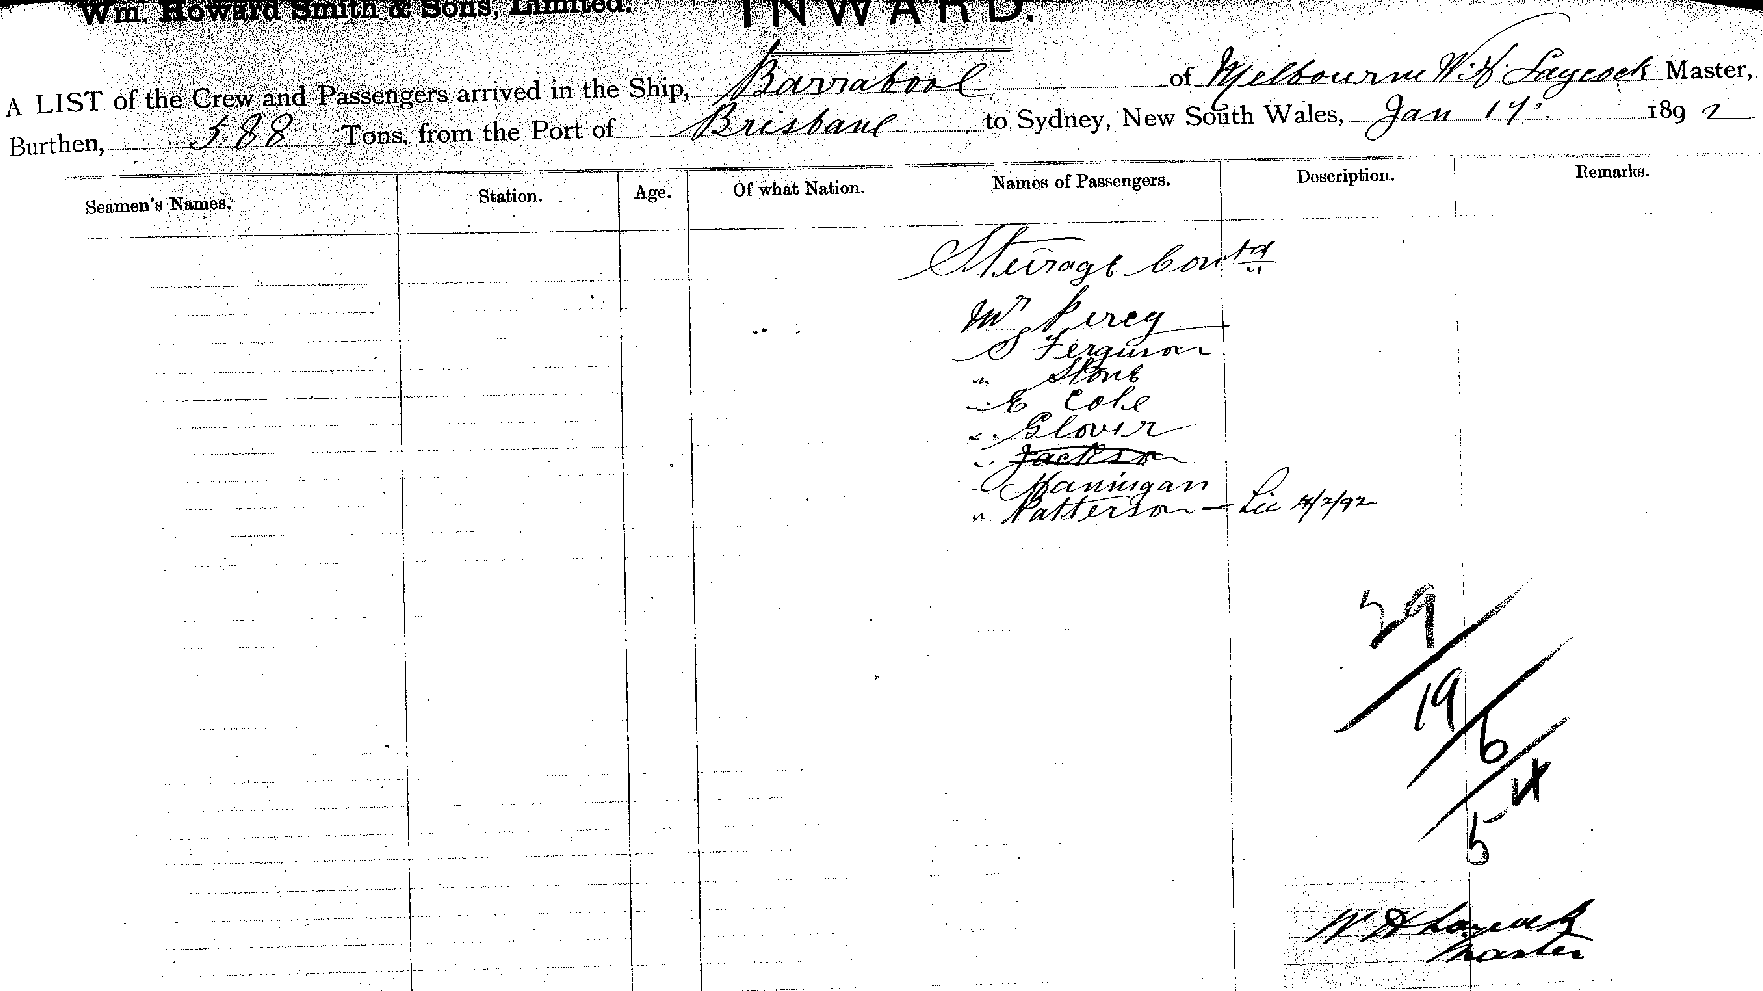 Wm. Howard Smith & Sons, Limited. INWARD.
A LIST of the Crew and Passengers arrived in the Ship, Barrabool of Melbourne W. H. Laycock Master,
Burthen, 588 Tons, from the Port of Brisbane to Sydney, New South Wales, Jan 17 1892
Seamen's Names. Station. Age. Of what Nation. Names of Passengers. Description. Remarks.
Steerage Contd
Mr Percy
S Ferguson
" Stone
" E Cole
" Glover
" Jackson
" Hannigan
" Patterson — Lic /2/92
29
19
6
4
5
W H Laycock
Master